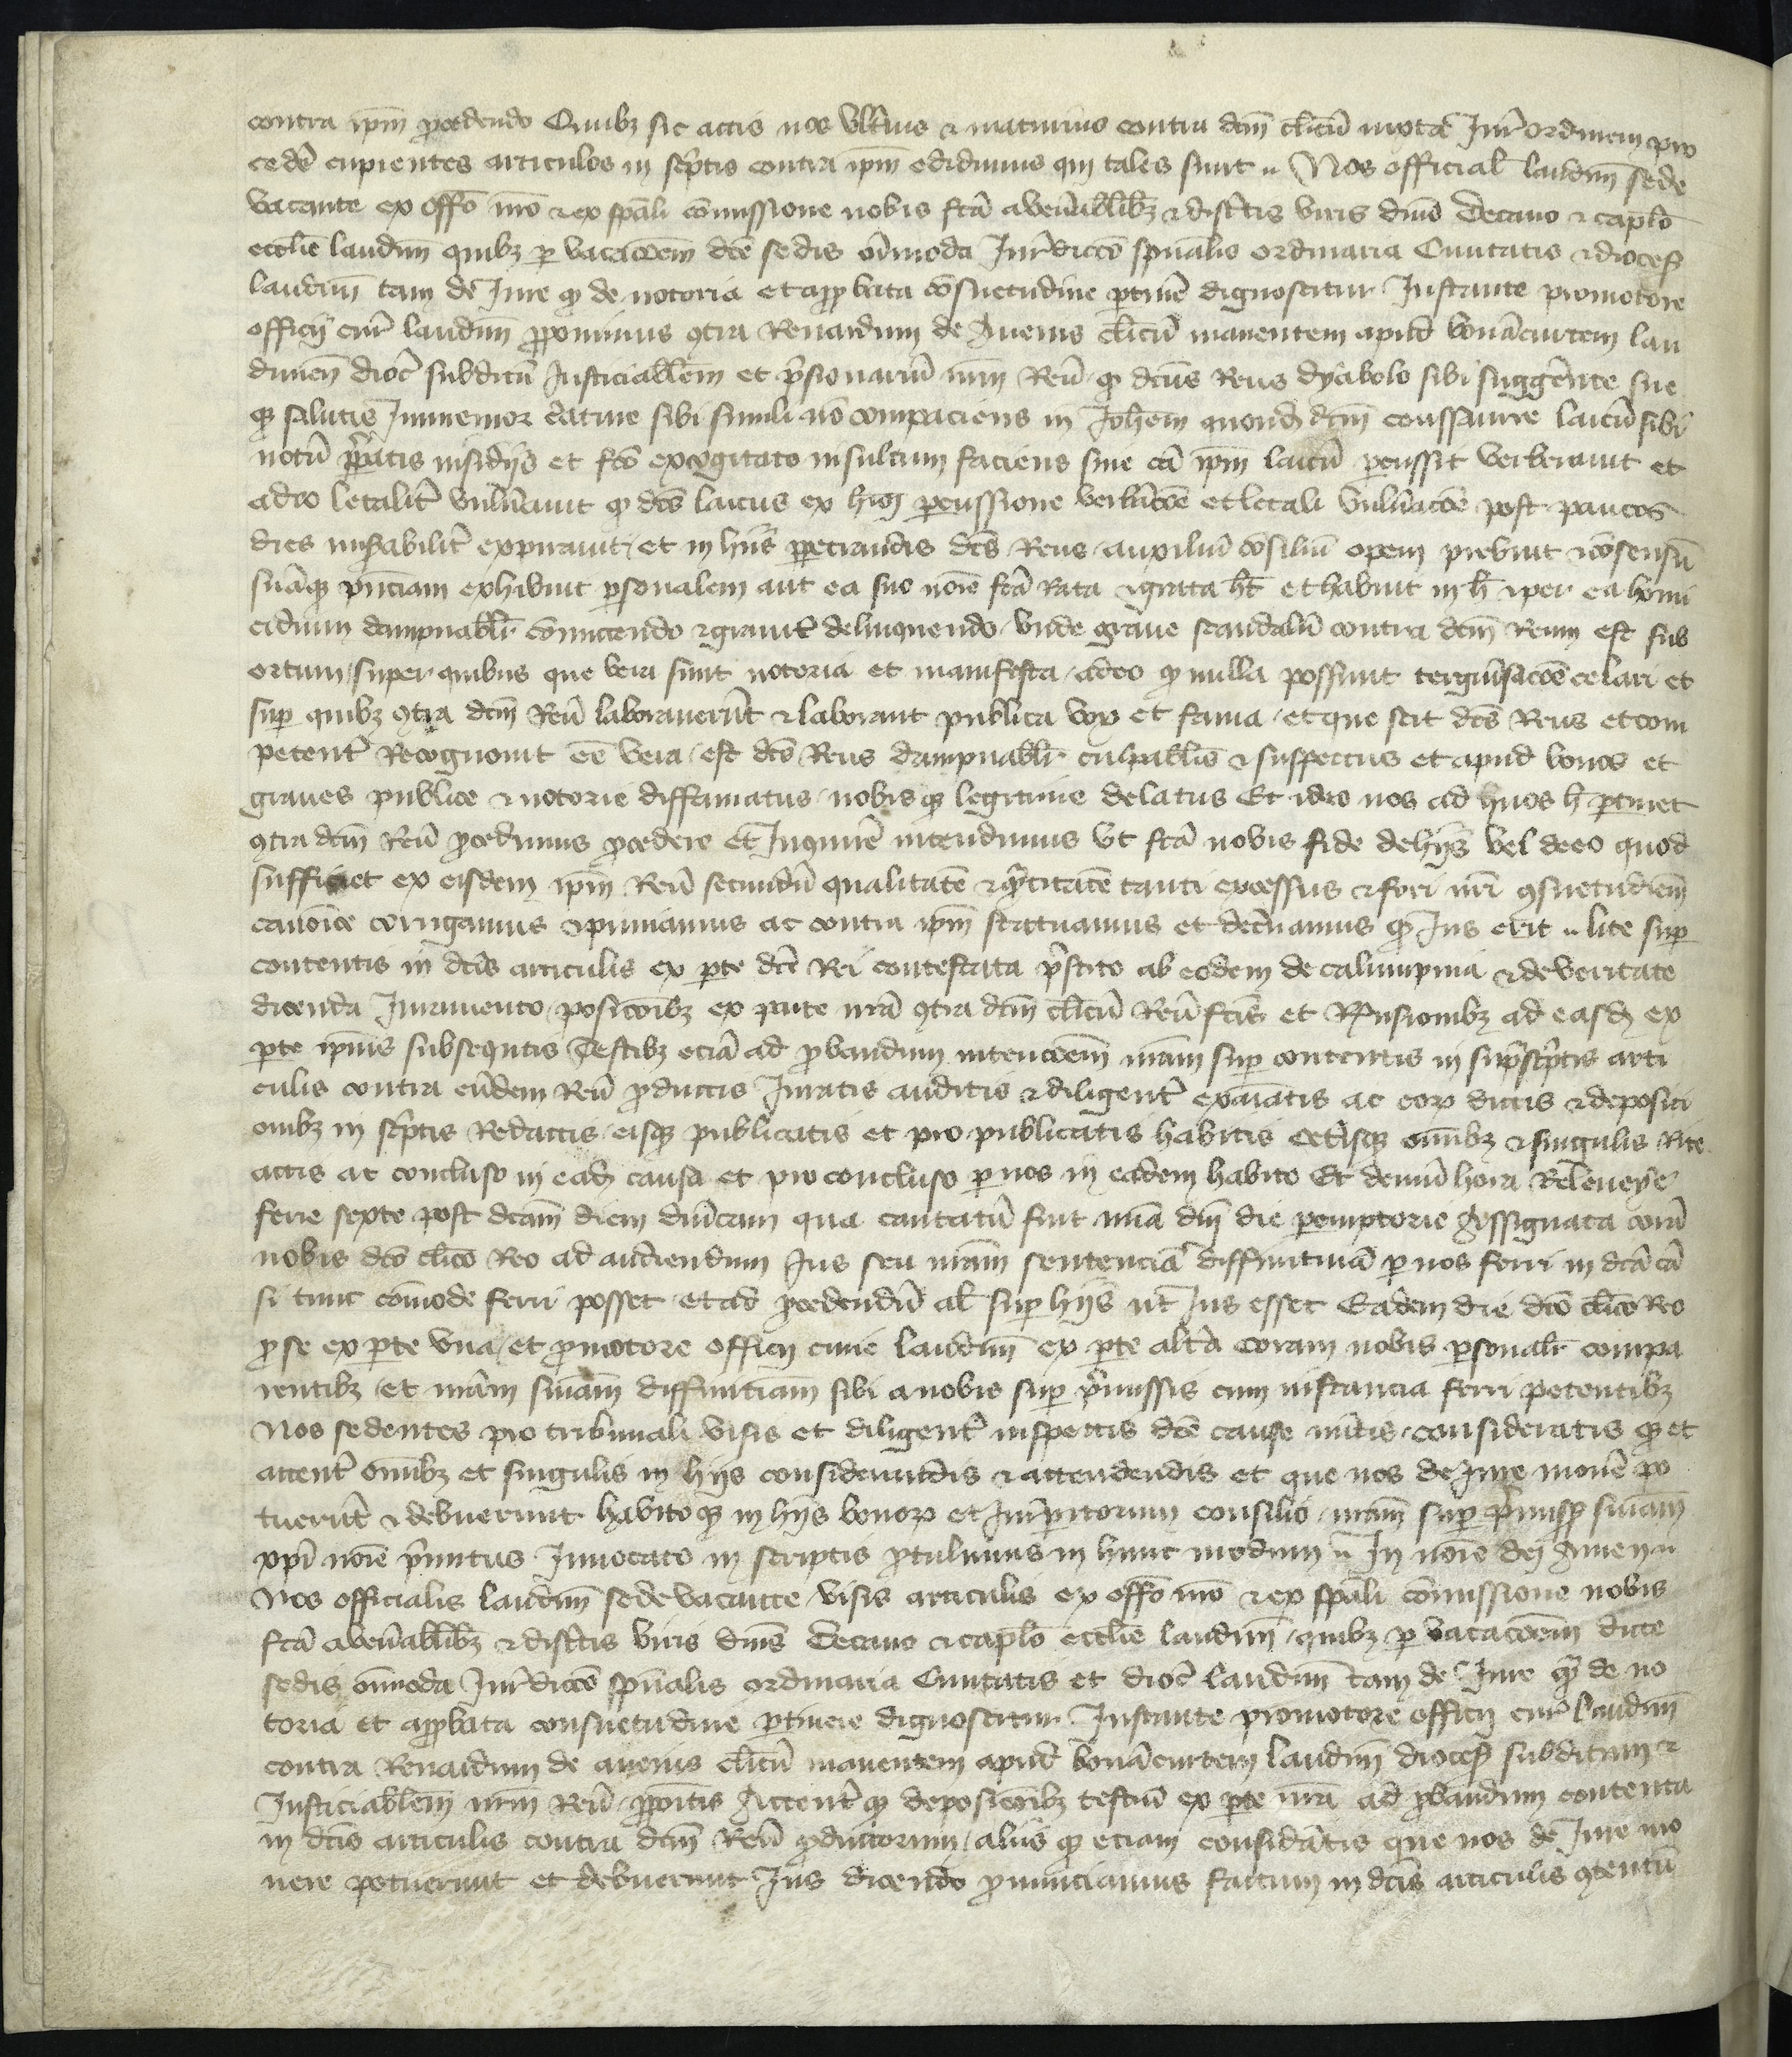 contra ip̄m ꝓcedendo Quibꝫ sic actis nos vlt̾ius ⁊ maturius contra dc̄m cl̄icū iuxta Jur̾ ordinem pro
ced̾e cupientes articulos in sc̾ptis contra ip̄m edidimus qui tales sunt .. Nos official̾ laudun̄ sede
vacante ex offo̅ nr̄o ⁊ ex sp̄ali co̅missione nobis fc̄a a ven̾abilibꝫ ⁊ disc̾tis viris dn̄is Decano ⁊ cap̄lo
ecc̄lie laudun̄ quibꝫ ꝑ vacac̅oem dc̄e sedis oi̅moda Jur̾dicc̅o sp̄ualis ordinaria Ciuitatis ⁊ dioces̾
laudun̄ tam de Jure qͣ de notoria et approbata co̅suetudine ꝑtin̾e dignoscitur Instante promotore
officij cur̾ laudun̄ ꝓponimus ꝯtra Renardum de Auenis cl̄icū manentem apud bona̅curtem lau
dunen̄ dioc̾ subditū Justiciabilem et p̾sionariū nr̄m Reū ꝙ dictus Reus dyabolo sibi sugger̾nte sue
qꝫ salutis Jnmemor c̾ature sibi simili no̅ compaciens in Joh̅em quond̾ dc̄m coussaurre laicū sibi
notū p̾paratis insidijs et fc̄o excogitato insultum faciens sine ca̅ ip̄m laicū ꝑcussit verberauit et
adeo letalit̾ vuln̾auit ꝙ dc̄us laicus ex hiꝰ ꝑcussione verb̾ac̅oe et letali vuln̾ac̅oe post paucos
dies mis̾abilit̾ expirauit / et in hijs ꝑpetrandis dc̄us Reus auxiliū co̅siliū opem prebuit ⁊ co̅sensū
sua̅qꝫ p̾nciam exhibuit ꝑsonalem aut ea suo no̅ie fc̄a Rata ⁊ grata h̅t et habuit in h̅ ⁊ per ea homi
cidium dampnabilit̾ co̅mittendo ⁊ grauit̾ delinquendo / vnde graue scandalū contra dc̄m Reum est sub
ortum / super quibus que vera sunt notoria et manifesta / adeo ꝙ nulla possunt tergiu̾sac̅oe celari et
suꝑ quibꝫ ꝯtra dc̄m Reū laborauerūt ⁊ laborant publica vox et fama / et que scit dc̄us Reus et com
petent̾ Recognouit ee̅ vera / est dc̄us Reus dampnabilit̾ culpabilis ⁊ suspectus et apud bonos et
graues publice ⁊ notorie diffamatus / nobis qꝫ legitime delatus Et ideo nos ad quos h̅ ꝑtinet
ꝯtra dc̄m Reū ꝓcedimus ꝓcedere et Inquir̾e intendimus vt fc̄a nobis fide de hijs vel de eo quod
sufficiet ex eisdem ip̄m Reū secundū qualitate̅ ⁊ qͣntitate̅ tanti excessus ⁊ fori nr̄i ꝯsuetudine̅
canonice corrigamus ⁊ puniamus ac contra ip̄m statuamus et dec̾namus qd̾ Jus erit .. lite suꝑ
contentis in dc̄is articulis ex ꝑte dc̄i Rei contestata p̾stito ab eodem de calumpnia ⁊ de veritate
dicenda Juramento / posic̅oibꝫ ex parte nr̄a ꝯtra dc̄m cl̄icū Reū fc̄is et Rn̄sionibꝫ ad easd̾ ex
ꝑte ip̄ius subsequtis Testibꝫ ecia̅ ad ꝓbandum intenc̅oem nr̄am suꝑ contentis in sup̾sc̾ptis arti
culis contra eu̅dem Reū ꝓductis Juratis auditis ⁊ diligent̾ exa̅iatis ac eoꝝ dictis ⁊ deposici
onibꝫ in sc̾ptis Redactis / eisqꝫ publicatis et pro publicatis habitis Cet̾isqꝫ om̅ibꝫ ⁊ singulis Rite
actis ac concluso in ead̾ causa et pro concluso ꝑ nos in eadem habito Et demū hora Releueye
ferie sexte post dc̄am diem dn̄icam qua cantatū fuit nr̄a dn̄i die ꝑemptorie Assignata cora̅
nobis dc̄o cl̄ico Reo ad audiendum Jus seu nr̄am sentencia̅ diffinitiua̅ ꝑ nos ferri in dc̄a ca̅
si tunc co̅mode ferri posset / et ad ꝓcedendū al̾ suꝑ hijs ut Jus esset Eadem die dc̄o cl̄ico Reo
ꝓ se ex ꝑte vna / et ꝓmotore officij curie laudun̄ ex ꝑte alt̾a coram nobis ꝑsonalit̾ compa
rentibꝫ / et nr̄am sn̄iam diffinitiam sibi a nobis suꝑ p̾missis cum instancia ferri petentibꝫ
Nos sedentes pro tribunali visis et diligent̾ inspectis dc̄e cause m̾itis / consideratis qꝫ et
attent̾ om̅ibꝫ et singulis in hijs considerandis ⁊ attendendis et que nos de Jure mouer̾e po
tuerūt ⁊ debuerunt habito qꝫ in hijs bonoꝝ et Jur̾ꝑitorum consilio / nr̄am suꝑ p̾miss̾ sn̄iam
xp̄i no̅ie p̾mitus Jnuocato in scriptis ꝓtulimus in hunc modum .. In no̅ie dei Amen ..
Nos officialis laudun̄ sede vacante / visis articulis ex offo̅ nr̄o ⁊ ex sp̄ali co̅missione nobis
fc̄a a ven̾abilibꝫ ⁊ disc̾tis viris dn̄is Decano ⁊ cap̄lo ecc̄lie laudun̄ / quibꝫ ꝑ vacac̅oem dicte
sedis om̅oda Jur̾dicc̅o sp̄ualis ordinaria Ciuitatis et dioc̾ laudun̄ tam de Jure qͣ de no
toria et approbata consuetudine ꝑtinere dignoscitur Instante promotore officij cur̾ laudun̄
contra Renardum de auenis cl̄icū manentem apud bona̅curtem laudun̄ dioces̾ subditum ⁊
Justiciabilem nr̄m Reū ꝓpo̅itis Attent̾ qꝫ deposic̅oibꝫ testiū ex ꝑte nr̄a ad ꝓbandum contenta
in dc̄is articulis contra dc̄m Reū ꝓductorum / alijs qꝫ eciam consid̾atis que nos de Jure mo
uere potuerunt et debuerunt Jus dicendo ꝓnunciamus factum in dc̄is articulis ꝯtentū